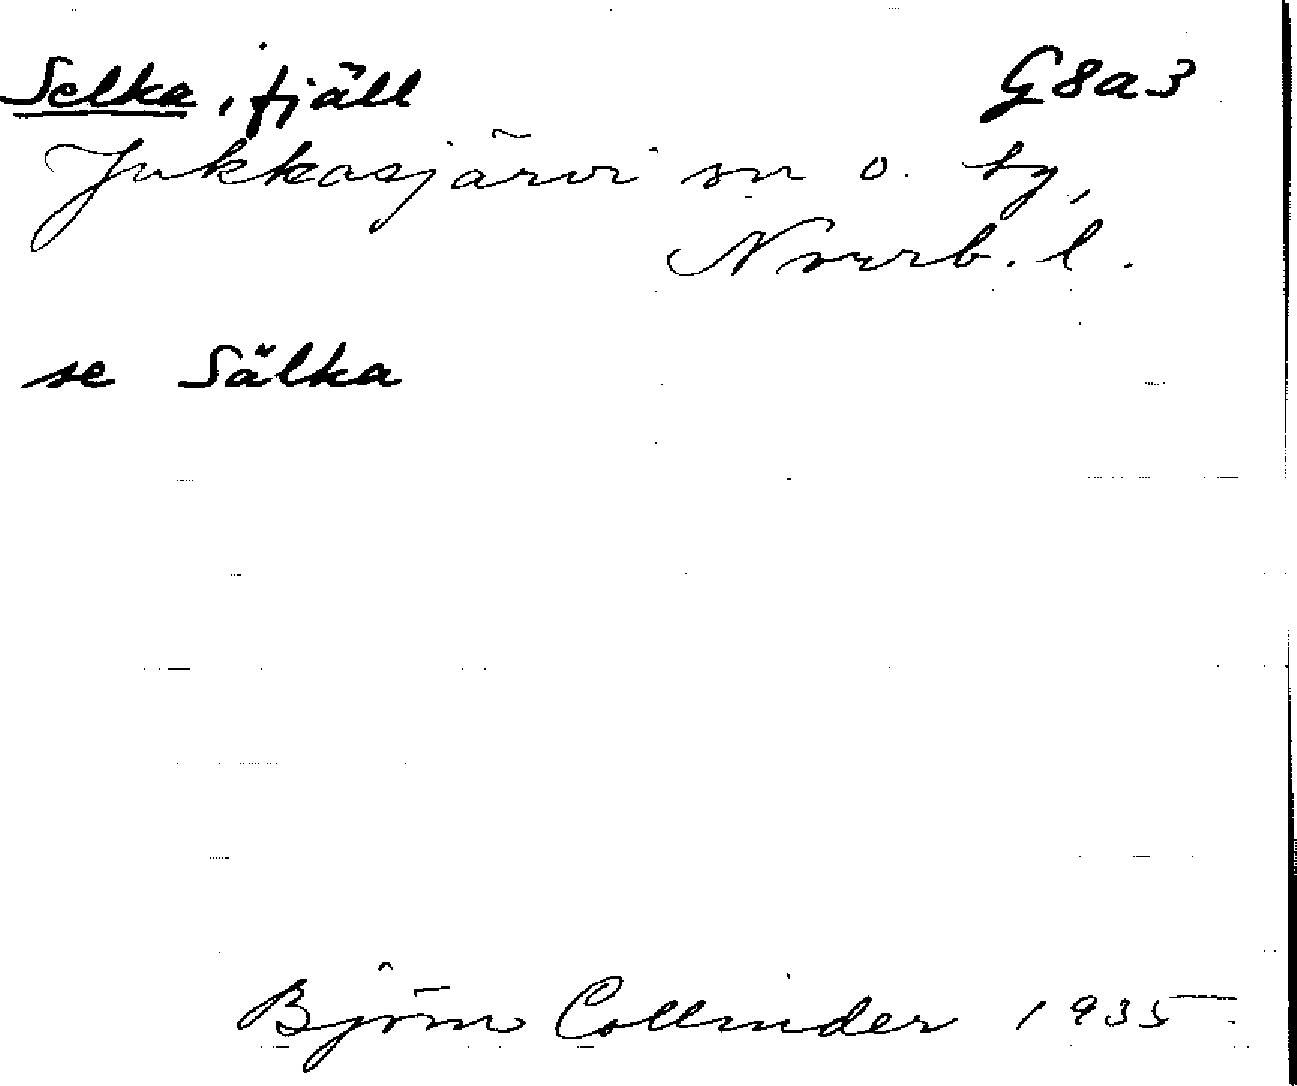 Selka, fjäll G8a3
Jukkasjärvi sn o. tg,
Norrb. l.
se Sälka
Björn Collinder 1935